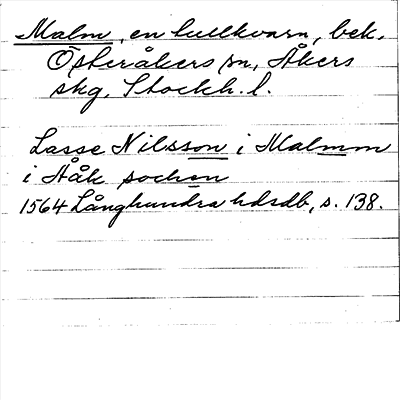 Malm, en hullkvarn, bek.
Österåkers sn, Åkers
skg, Stockh. l.
Lasse Nilsson i Malmm
i Ååk sochen
1564 Långhundra hdrdb, s. 138.